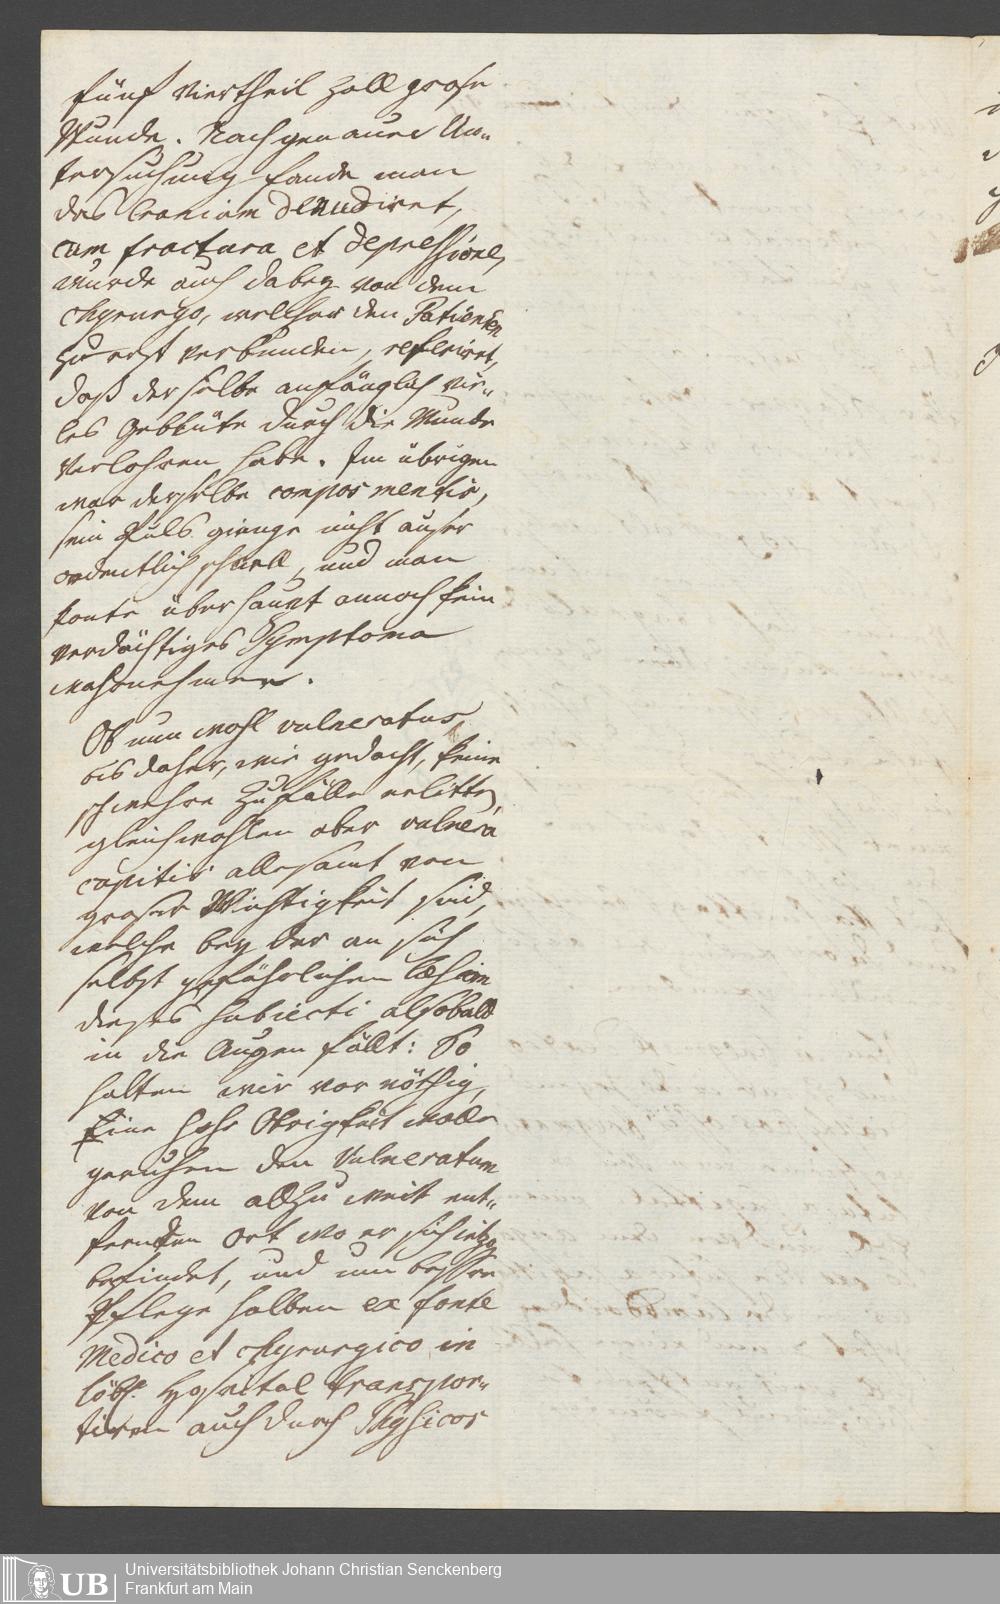 fünf Viertheil Zoll große
Wunde. Nach genauer Un„
tersuchung fande man
das Cranium denudiret,
cum fractura et depressione,
wurde auch dabey von dem
Chyrurgo, welcher den Patienten
zuerst verbunden, referiret,
daß derselbe anfänglich vie„
les Geblüte durch die Wunde
verlohren habe. Im übrigen
war derselbe compos mentis,
sein Puls gienge nicht außer
ordentlich schnell, und man
konte überhaupt annoch kein
verdächtiges Symptoma
wahrnehmen.
Ob nun wohl vulneratus,
bis daher, wie gedacht, keine
schwehre Zufälle erlitten,
gleichwohlen aber vulnera
capitis allesamt von
großer Wichtigkeit sind,
welche bey der an sich
selbst gefährlichen Læsion
dieses subiecti alsobald
in die Augen fällt: So
halten wir vor nöthig,
Eine hohe Obrigkeit wolle
geruhen den Vulneratum
von dem allzu weit ent„
fernten Ort wo er sich itzo
befindet, und um beßere
Pflege halben ex fonte
Medico et chyrurgico in
löbl. Hospital transpor„
tiren auch durch Physicos
Universitätsbibliothek Johann Christian Senckenberg
Frankfurt am Main
UB